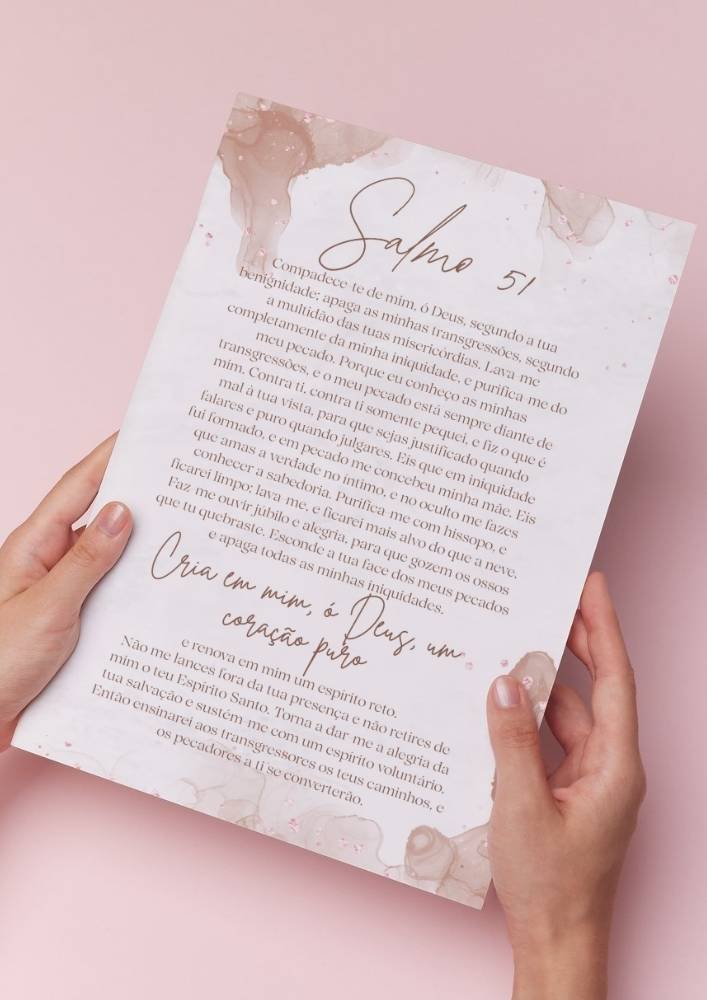 Salmo 51
Compadece-te de mim, ó Deus, segundo a tua
benignidade; apaga as minhas transgressões, segundo
a multidão das tuas misericórdias. Lava-me
completamente da minha iniquidade, e purifica-me do
meu pecado. Porque eu conheço as minhas
transgressões, e o meu pecado está sempre diante de
mim. Contra ti, contra ti somente pequei, e fiz o que é
mal à tua vista, para que sejas justificado quando
falares e puro quando julgares. Eis que em iniquidade
fui formado, e em pecado me concebeu minha mãe. Eis
que amas a verdade no íntimo, e no oculto me fazes
conhecer a sabedoria. Purifica-me com hissopo, e
ficarei limpo; lava-me, e ficarei mais alvo do que a neve.
Faz-me ouvir júbilo e alegria, para que gozem os ossos
que tu quebraste. Esconde a tua face dos meus pecados
e apaga todas as minhas iniquidades.
Cria em mim, ó Deus, um
coração puro
e renova em mim um espírito reto.
Não me lances fora da tua presença e não retires de
mim o teu Espírito Santo. Torna a dar-me a alegria da
tua salvação e sustém-me com um espírito voluntário.
Então ensinarei aos transgressores os teus caminhos, e
os pecadores a ti se converterão.